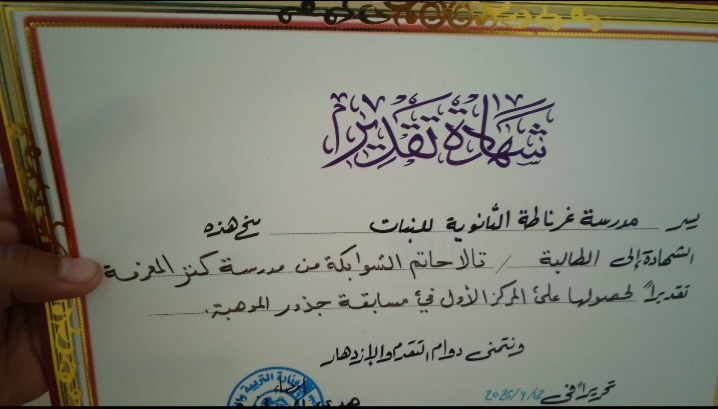 شهادة تقدير
يسر مدرسة غرناطة الثانوية للبنات منح هذه
الشهادة إلى الطالبة / تالا حاتم الشوابكة من مدرسة كنز المعرفة
تقديراً لحصولها على المركز الأول في مسابقة جذور الموهبة.
ونتمنى دوام التقدم والإزدهار
تحريراً في